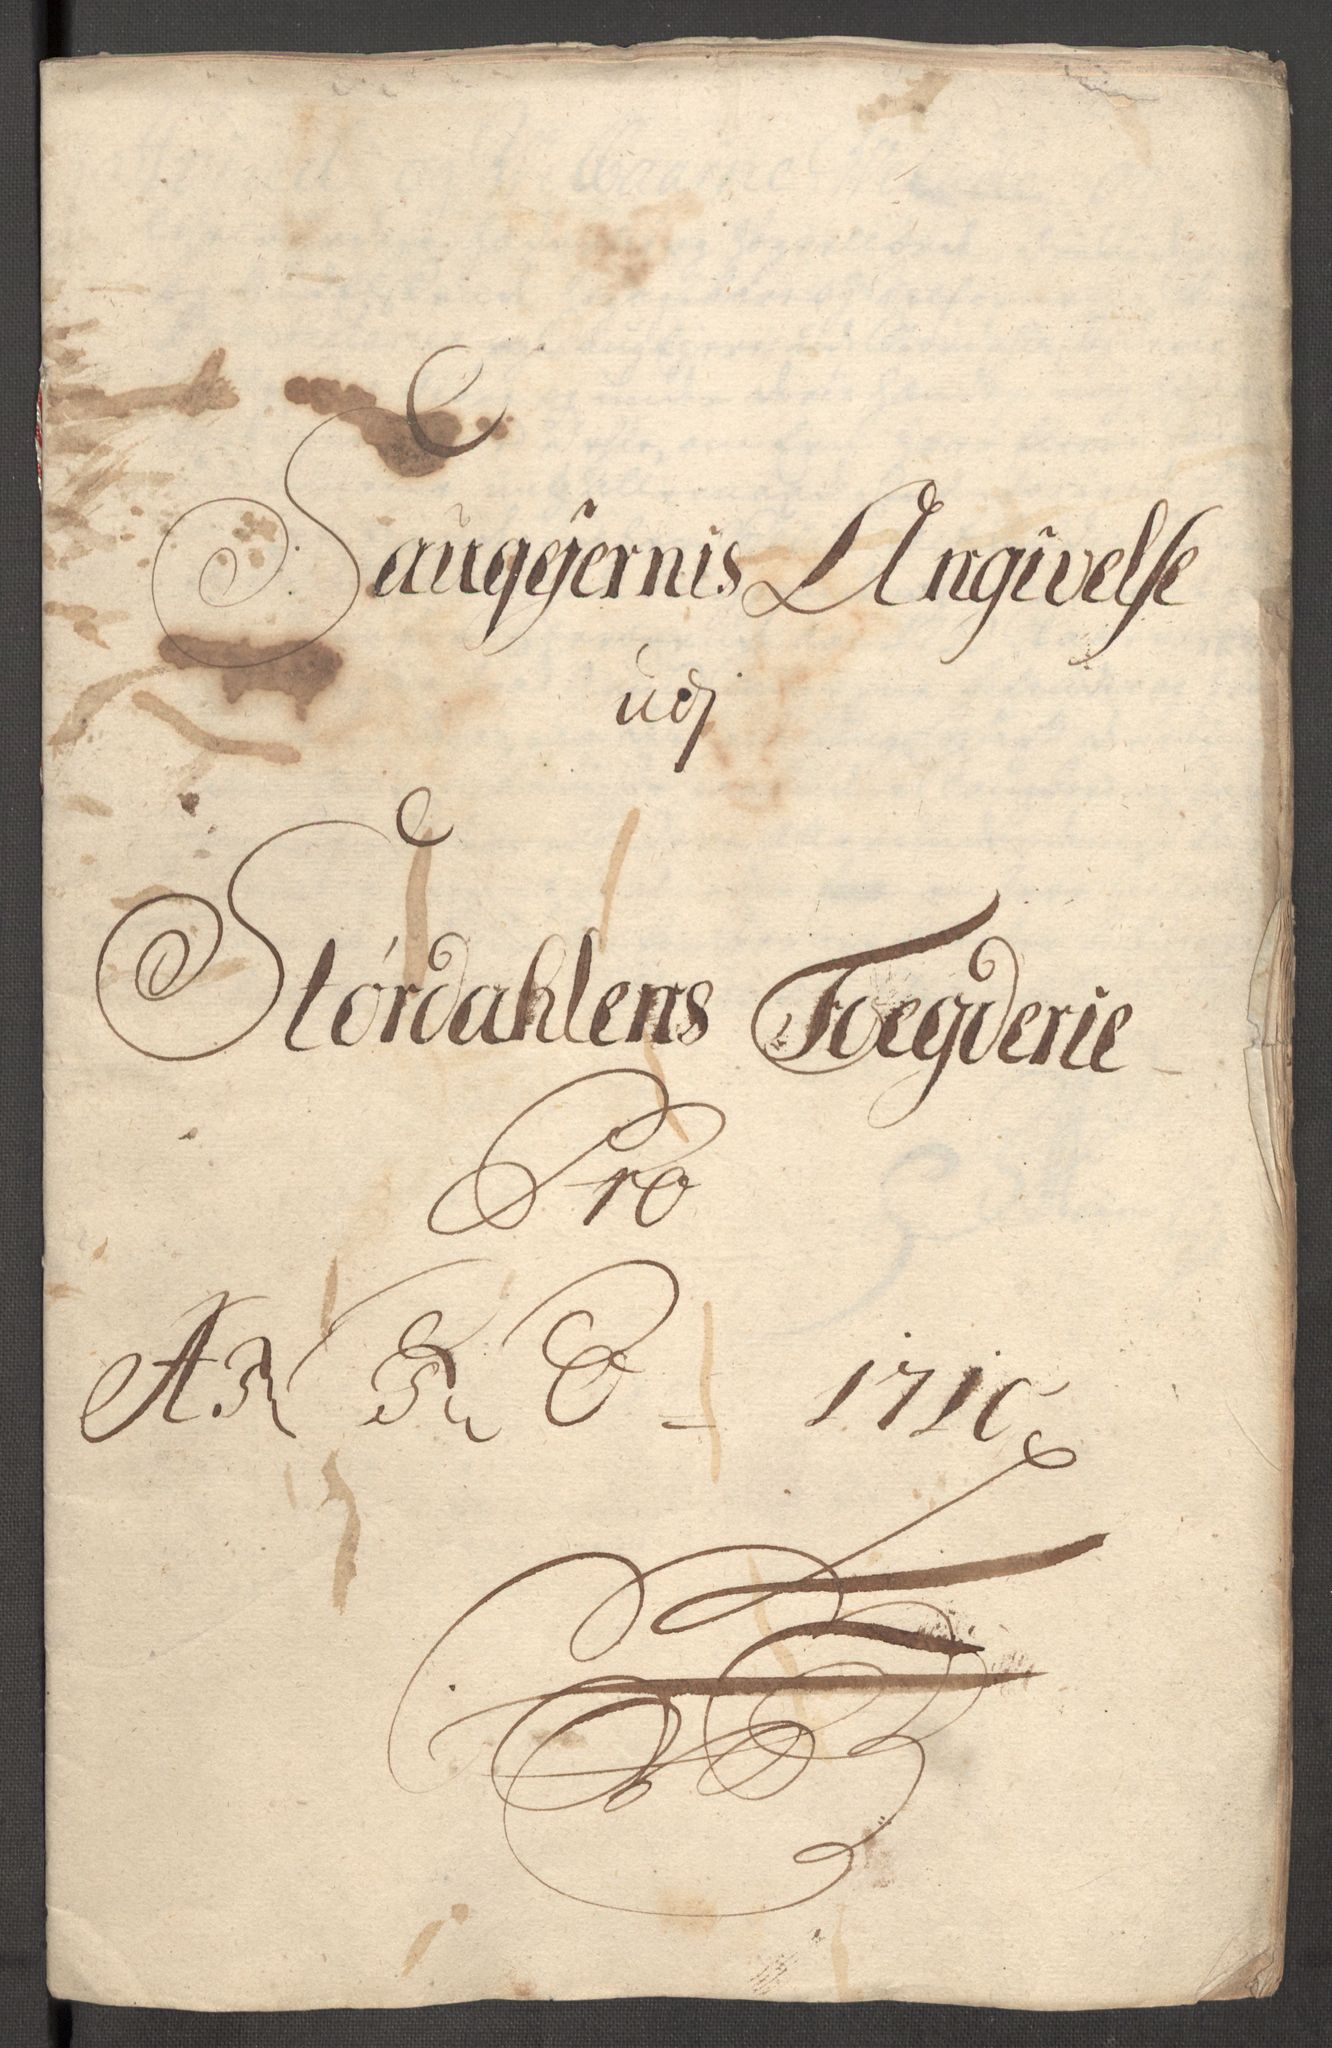 Saugejernis Angivelse
udj
Størdahlens Foegderie
Pro
1710